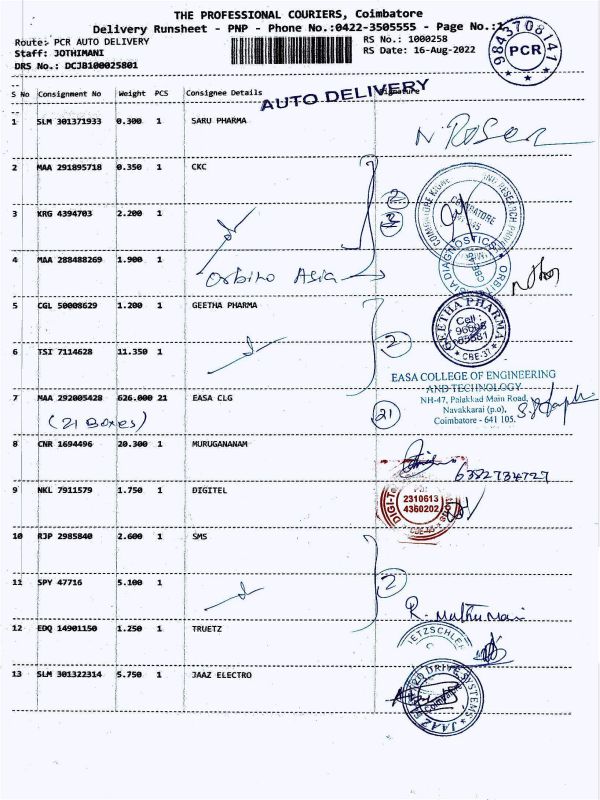 THE PROFESSIONAL COURIERS, Coimbatore
Delivery Runsheet - PNP - Phone No.:0422-3505555 - Page No.:1
Route: PCR AUTO DELIVERY RS No.: 1000258
Staff: JOTHIMANI RS Date: 16-Aug-2022
DRS No.: DCJB100025801
9843708141
PCR
S No Consignment No Weight PCS Consignee Details Signature
AUTO DELIVERY
1 SLM 301371933 0.300 1 SARU PHARMA
2 MAA 291895718 0.350 1 CKC
3 KRG 4394703 2.200 1
4 MAA 288488269 1.900 1
Orbito Asia
5 CGL 50008629 1.200 1 GEETHA PHARMA
GEETHA PHARMA
Cell :
CBE-37
6 TSI 7114628 11.350 1
2
EASA COLLEGE OF ENGINEERING
AND TECHNOLOGY
NH-47, Palakkad Main Road,
Navakkarai (p.o),
Coimbatore - 641 105.
7 MAA 292005428 626.000 21 EASA CLG
(21 Boxes)
21
8 CNR 1694496 20.300 1 MURUGANANAM
6382734727
9 NKL 7911579 1.750 1 DIGITEL
2310613
4360202
10 RJP 2985840 2.600 1 SMS
11 SPY 47716 5.100 1
2
12 EDQ 14901150 1.250 1 TRUETZ
13 SLM 301322314 5.750 1 JAAZ ELECTRO